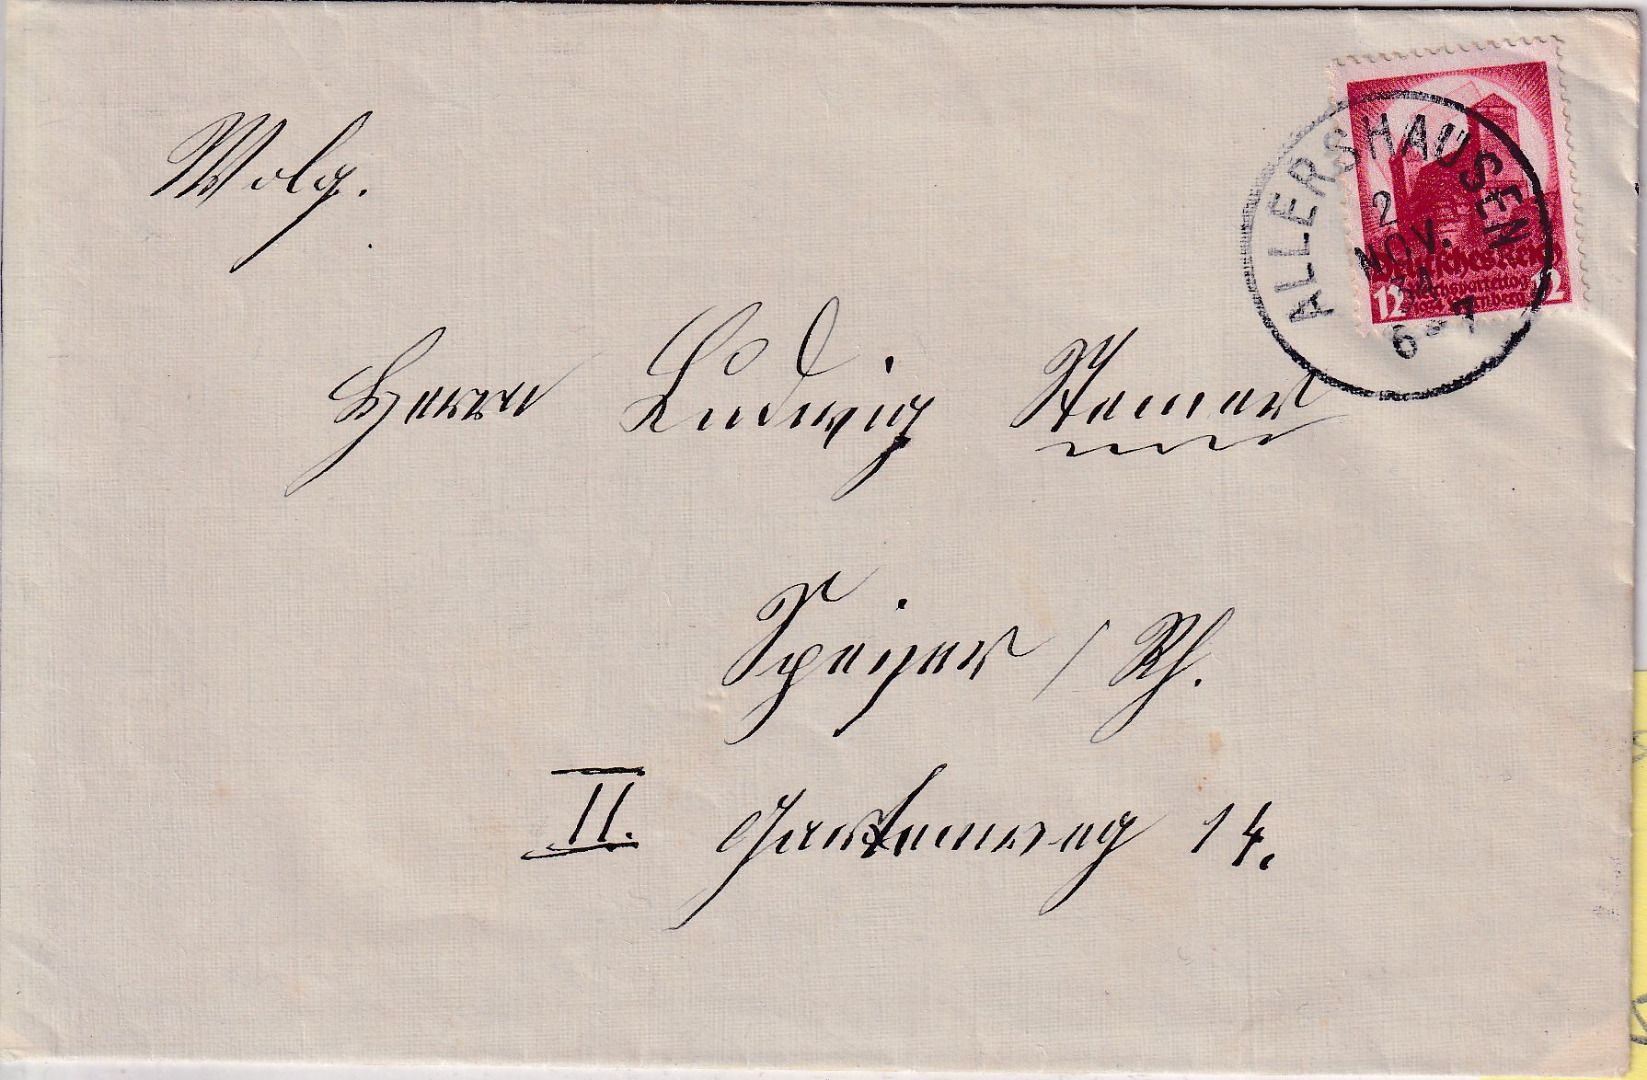 Wolg.
ALLERSHAUSEN
2
NOV.
34
6-7
Deutsches Reich
12 Reichsparteitag 12
1934 Nürnberg
Herrn Ludwig
Speyer / Rh.
II. Gartenweg 14.